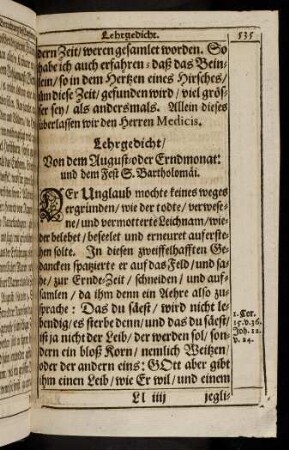 Lehrgedicht.
535
dern Zeit/ weren gesamlet worden. So
habe ich auch erfahren / daß das Bein-
lein / so in dem Hertzen eines Hirsches/
um diese Zeit/ gefunden wird / viel grös-
ser sey / als andersmals. Allein dieses
überlassen wir den Herren Medicis.
Lehrgedicht/
Von dem August/ oder Erndmonat:
und dem Fest S. Bartholomäi.
DEr Unglaub mochte keines weges
ergründen/ wie der todte/ verwese-
ne / und vermotterte Leichnam / wie-
der belebet / beseelet und erneuret aufferste-
hen solte. In diesen zweiffelhafften Ge-
dancken spatzierte er auf das Feld/ und sa-
he / zur Ernde-Zeit / schneiden / und auf-
samlen / da ihm denn ein Aehre also zu-
sprache: Das du säest / wird nicht le-
bendig/ es sterbe denn/ und das du säest/
ist ja nicht der Leib/ der werden sol/ son-
dern ein bloß Korn / nemlich Weitzen/
oder der andern eins: GOtt aber gibt
ihm einen Leib / wie Er wil / und einem
1. Cor.
15. v. 36.
Joh. 12.
v. 24.
Ll iiij
jegli-